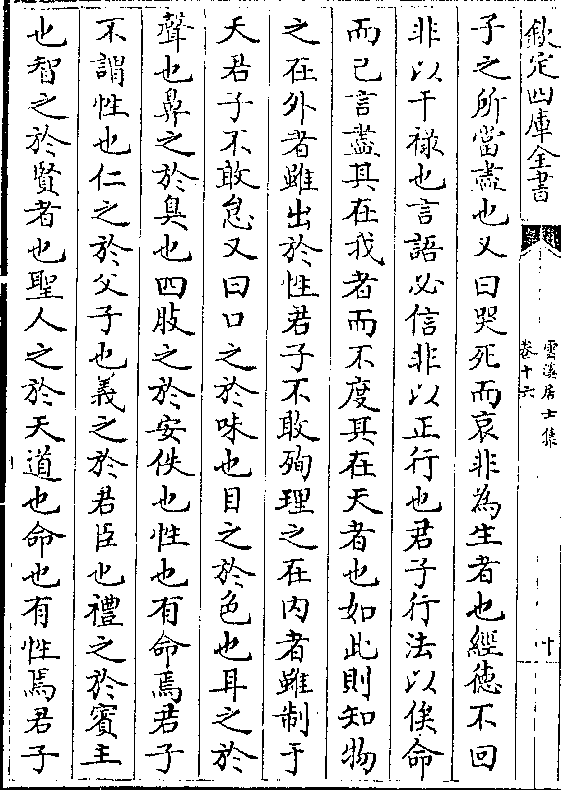 欽定四庫全書
雲溪居士集
卷十六
十
子之所當盡也又曰哭死而哀非為生者也經德不回
非以干祿也言語必信非以正行也君子行法以俟命
而已言盡其在我者而不度其在天者也如此則知物
之在外者雖出於性君子不敢殉理之在内者雖制于
天君子不敢怠又曰口之於味也目之於色也耳之於
聲也鼻之於臭也四肢之於安佚也性也有命焉君子
不謂性也仁之於父子也義之於君臣也禮之於賓主
也智之於賢者也聖人之於天道也命也有性焉君子